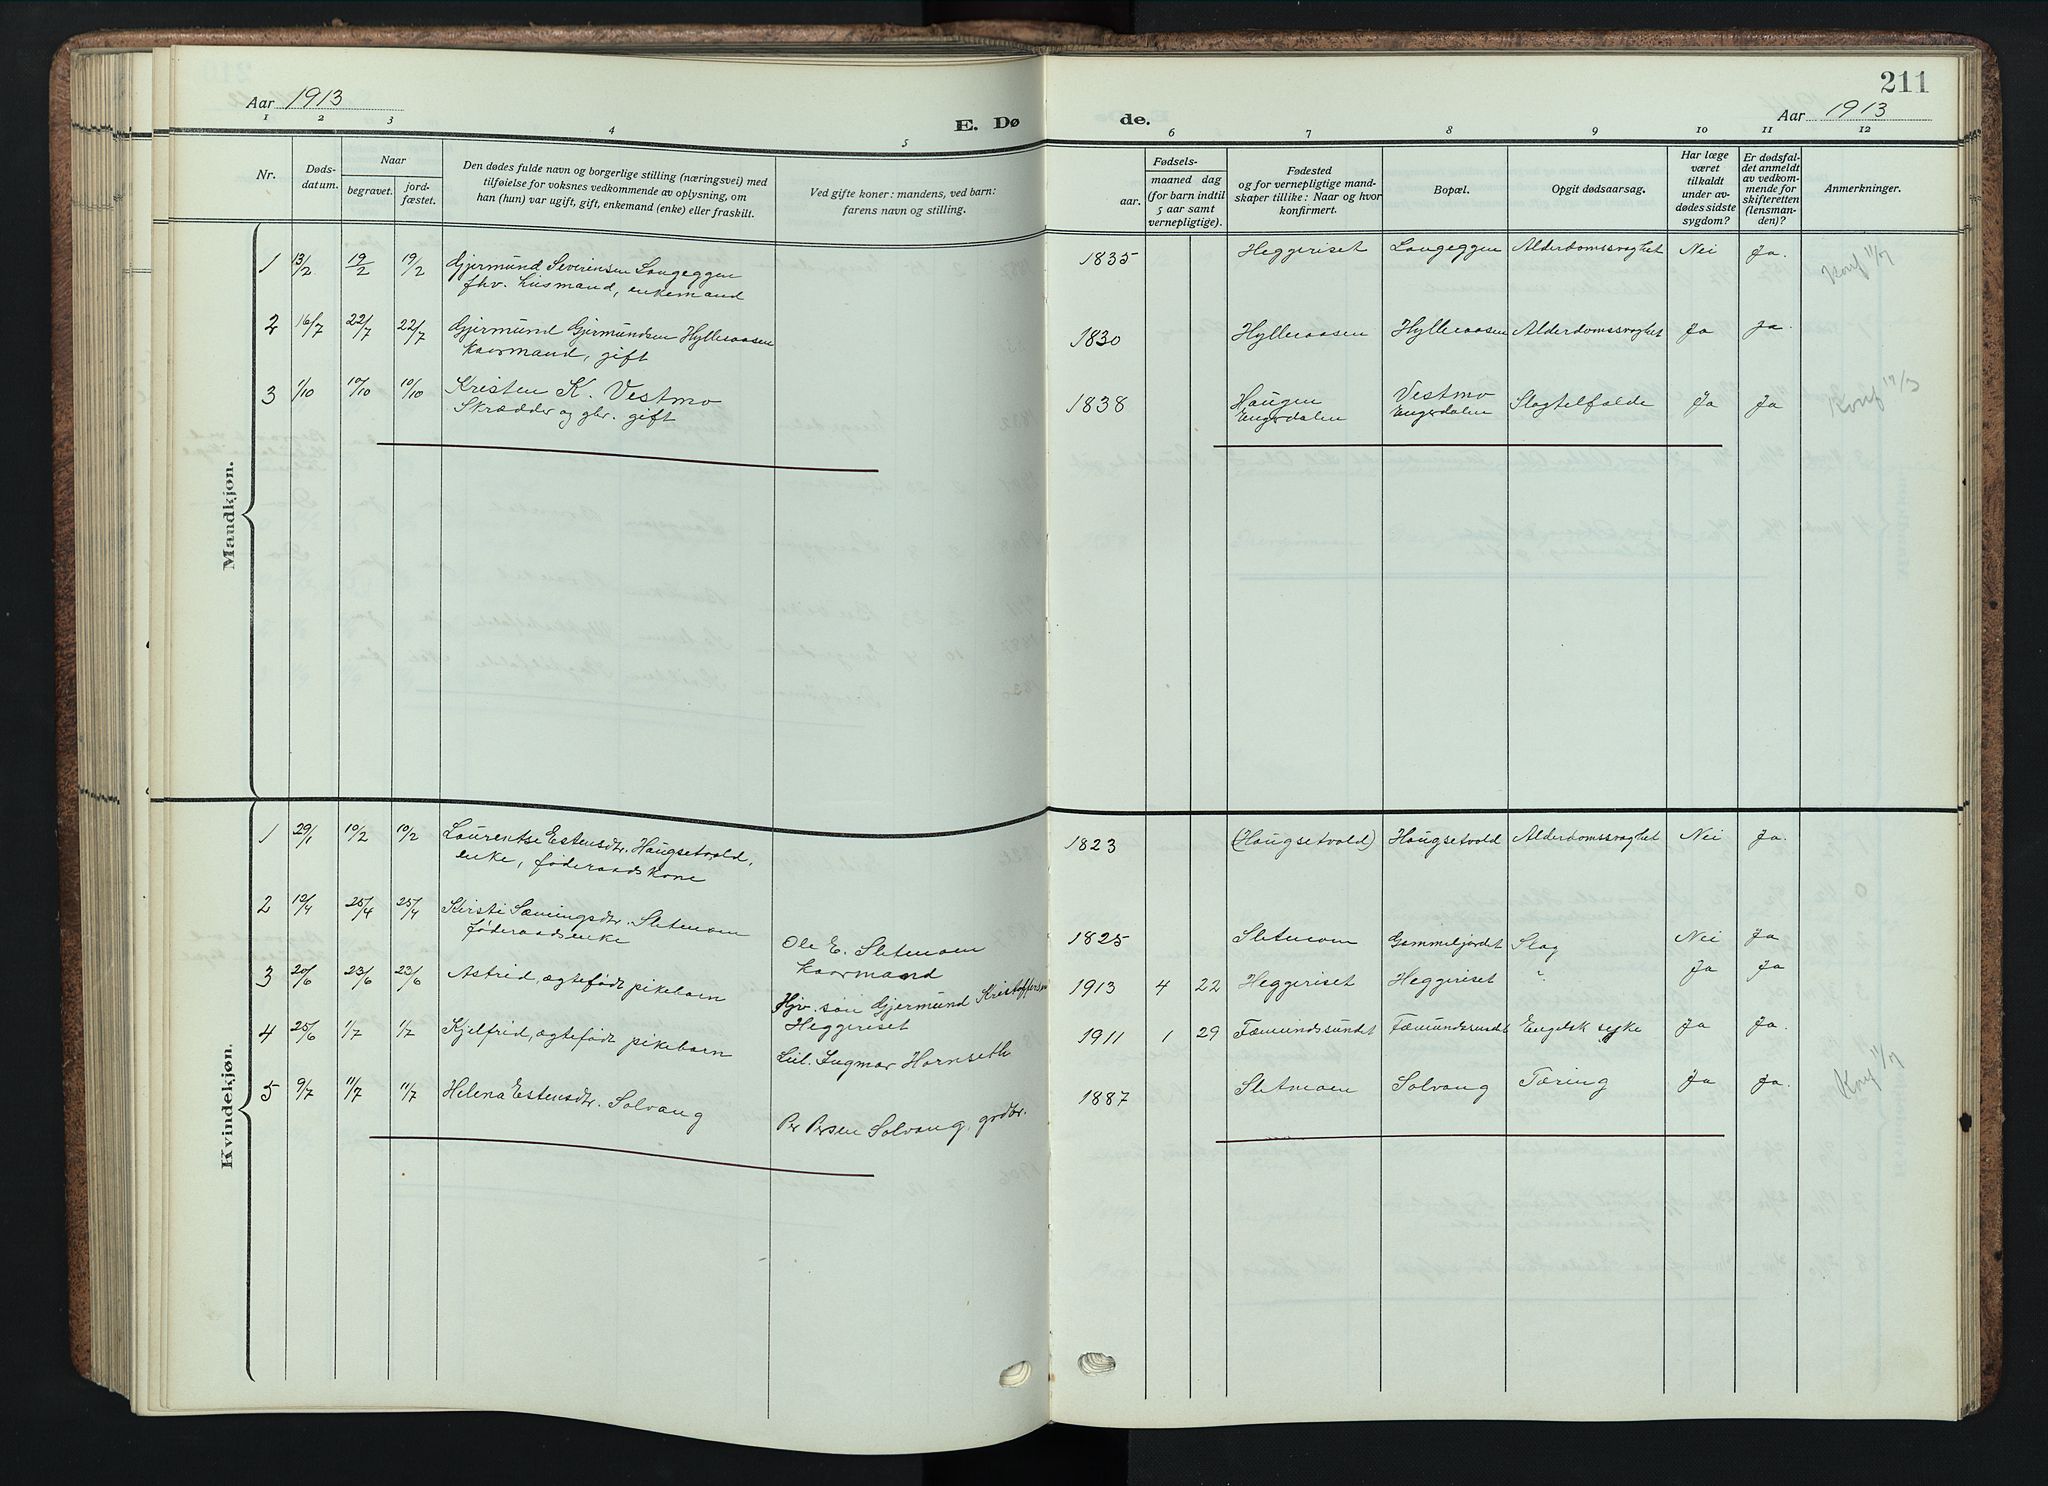 211
Aar 1913
E. Dø
de.
Aar 1913
1 2 3 4 5 6 7 8 9 10 11 12
Nr.
Døds-
datum.
Naar
begravet.
jord-
fæstet.
Den dødes fulde navn og borgerlige stilling (næringsvei) med
tilføielse for voksnes vedkommende av oplysning, om
han (hun) var ugift, gift, enkemand (enke) eller fraskilt.
Ved gifte koner: mandens, ved barn:
farens navn og stilling.
Fødsels-
aar.
maaned dag
(for barn indtil
5 aar samt
vernepligtige).
Fødested
og for vernepligtige mand-
skaper tillike: Naar og hvor
konfirmert.
Bopæl.
Opgit dødsaarsag.
Har læge
været
tilkaldt
under av-
dødes sidste
sygdom?
Er dødsfal-
det anmeldt
av vedkom-
mende for
skifteretten
(lensman-
den)?
Anmerkninger.
Mandkjøn.
1 13/2 19/2 19/2 Gjermund Severinsen Langeggen 1835 Heggeriset Langeggen Alderdomssvaghet Nei Ja. Konf 11/7
fhv. husmand, enkemand
2 16/7 22/7 22/7 Gjermund Gjermundsen Hylleraasen 1830 Hylleraasen Hylleraasen Alderdomssvaghet Ja Ja.
Kaarmand, gift
3 1/10 10/10 10/10 Kristen K. Vestmo 1838 Haugen Vestmo Slagtelfælde Ja Ja Konf
Skrædder og gbr. gift Engerdalen Engerdalen
Kvindekjøn.
1 29/1 10/2 10/2 Laurentse Estensdtr. Haugsetvold, 1823 (Haugsetvold) Haugsetvold Alderdomssvaghet Nei Ja.
enke, føderaadskone
2 12/4 25/4 25/4 Kirsti Sæmingsdtr. Sletmoen Ole E. Sletmoen 1825 Sletmoen Gammeljordet Slag Nei Ja
føderaadsenke Kaarmand
3 20/6 23/6 23/6 Astrid, ægtefødt pikebarn Hjv. søn Gjermund Kristoffersen 1913 4 22 Heggeriset Heggeriset ? Ja Ja
Heggeriset
4 25/6 1/7 1/7 Kjelfrid, ægtefødt pikebarn Ingmar Hornseth 1911 1 29 Fæmundssundet Fæmundssundet Engelsk syke Ja Ja.
5 9/7 11/7 11/7 Helena Estensdtr. Solvang Per Persen Solvang, grdbr. 1887 Sletmoen Solvang Tæring Ja Ja. Konf 11/7